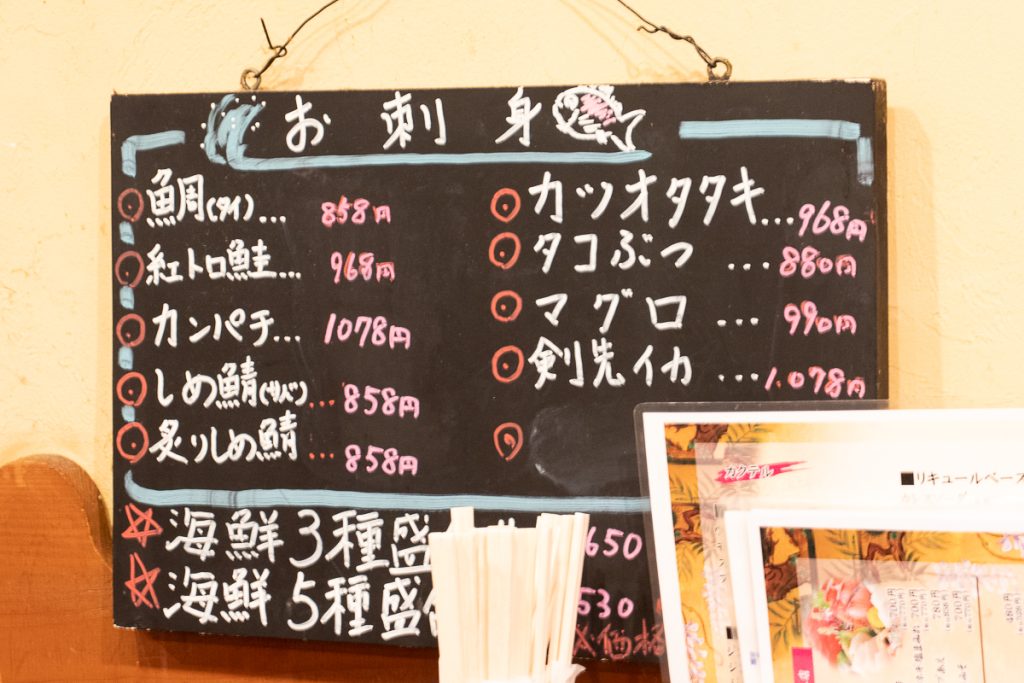 お刺身
鯛(タイ)... 858円
紅トロ鮭... 968円
カンパチ... 1078円
しめ鯖(サバ)... 858円
炙りしめ鯖... 858円
カツオタタキ... 968円
タコぶつ ... 880円
マグロ ... 990円
剣先イカ ... 1.078円
☆海鮮3種盛
650
☆海鮮5種盛
530
価格
カクテル
■リキュールベース